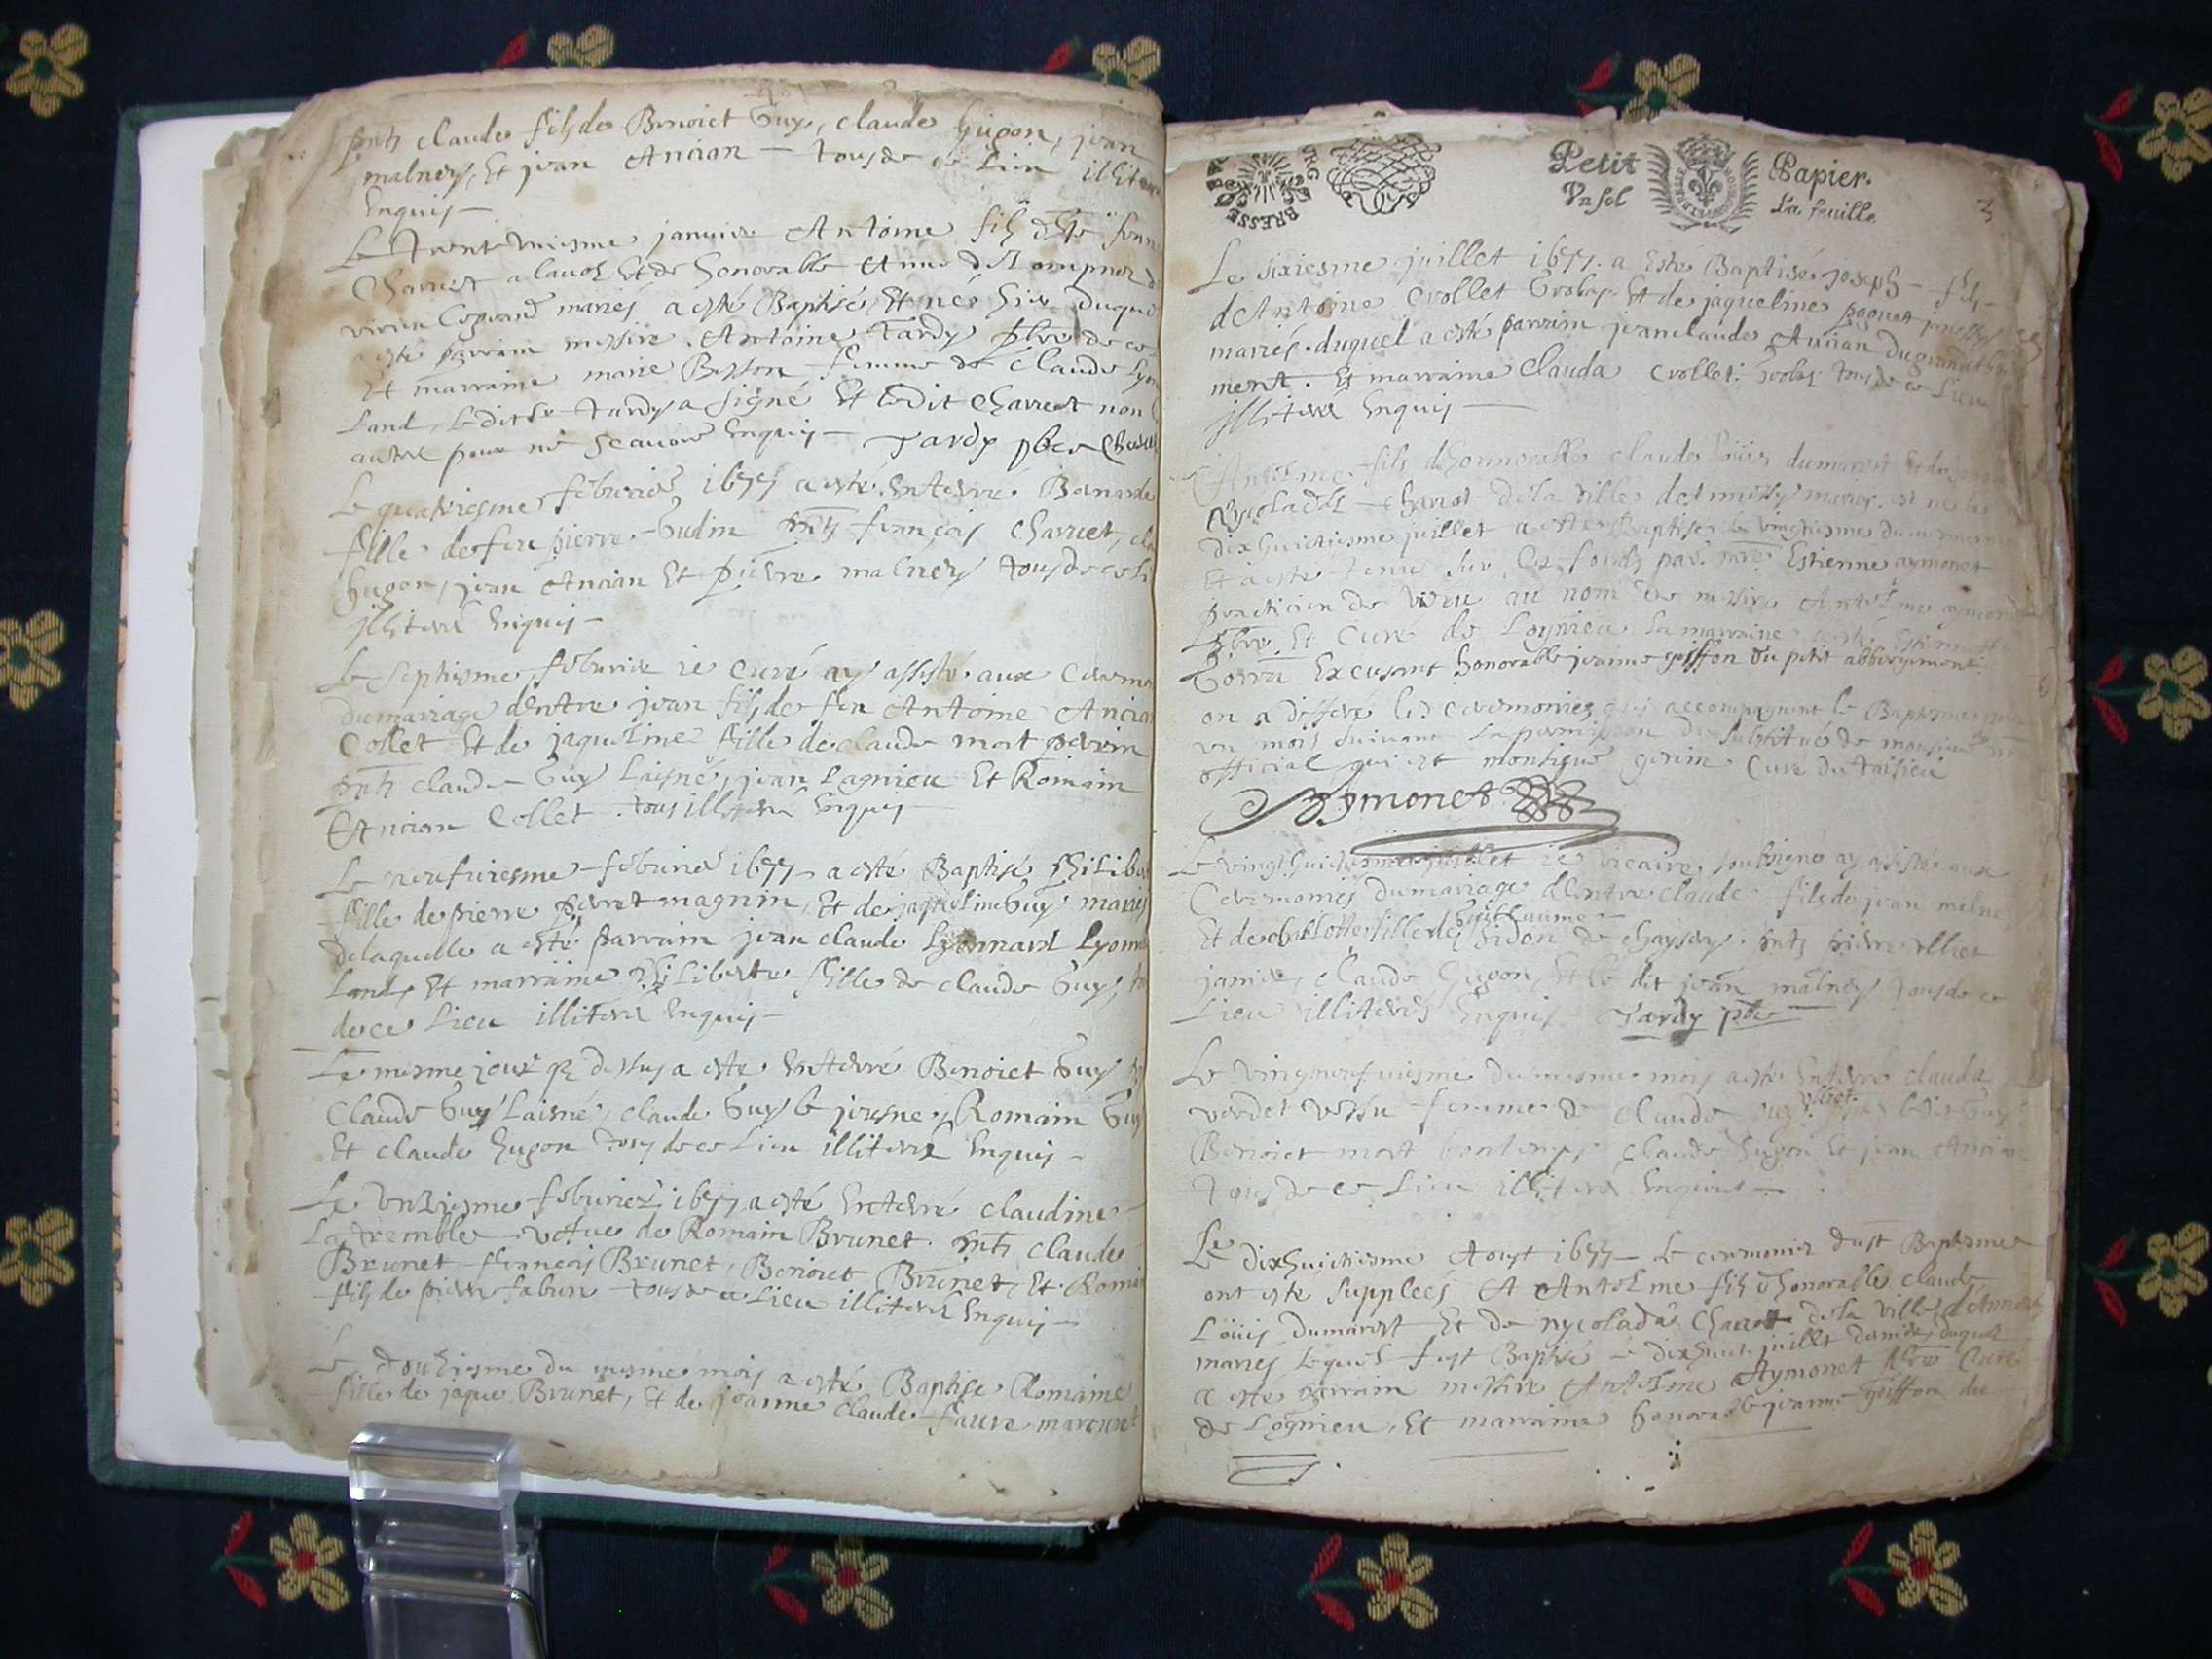 pnts claude fils de Benoict Guy, claude hugon, jean
malney, Et jean Ancian — tous de ce Lieu illiterés
Enquis —
Le Trente uniesme janvier Antoine fils
Charvet a lavol Et de honorable
mariés a esté Baptisé, Et né hier duquel
a esté parrain messire Antoine Tardy pbre de ce
Et marraine marie Besson femme de Claude Lyon
Land, Ledit Sr Tardy a signé Et ledit Charvet non
autre pour ne scavoir Enquis — Tardy pbre
Le quatriesme febvrier 1677 a esté Enterré Benarde
fille de feu pierre Gudin pnts françois Charvet, cla
hugon, jean Ancian Et pierre malney tous de ce li
illiterés Enquis —
Le Septiesme febvrier ie Curé ay assisté aux Ceremo
du mariage d'entre jean fils de feu Antoine Ancian
Collet Et de jaquelme fille de claude mort
pnts claude Guy Laisné, jean Lagnieu Et Romain
Ancian Collet tous illiterés Enquis —
Le neufviesme febvrier 1677 a esté Baptisé Philiber
fille de pierre perret magnin, Et de jaquelme Guy mariés
de laquelle a esté parrain jean claude Lyonnard Lyon
Land, Et marraine Philiberte fille de claude Guy, to
de ce Lieu illiterés Enquis —
Le mesme jour que dessus a esté Enterré Benoict Guy
Claude Guy Laisné, claude Guy le jeusne, Romain Guy
Et claude hugon tous de ce Lieu illiterés Enquis —
Le Unziesme febvrier 1677 a esté Enterré claudine
La tremble vefue de Romain Brunet. pnts claude
Brunet françois Brunet, Benoict Brunet, Et Romain
fils de pierre fabun tous de ce Lieu illiterés Enquis —
Le douziesme du mesme mois a esté Baptisé Romaine
fille de jaque Brunet, Et de jeanne claude faure
BRESSE
Petit Papier.
Un sol La feuille
3
Le sixiesme juillet 1677. a Esté Baptisé joseph — fils
d'Antoine Crollet Et de jaqueline
mariés. duquel a esté parrain jean claude Ancian du grand abberge
ment. Et marraine Clauda Crollet. tous de ce Lieu
illiterés Enquis —
Antelme fils d'honnorable claude Loüis dumarest
Nycolada Charrot de la ville d'Annessy mariés. est né le
dix huictiesme juillet a esté Baptisé le vingtiesme du mesme
Et a esté tenu sur Les fonds par mre Estienne aymonet
practicien de Vieu au nom de messire Antelme aymonet
pbre. Et Curé de Lognieu La marraine a esté
Excusant honorable jeanne goiffon du petit abbergement.
on a differé les ceremonies qui accompagnent le Baptesme
un mois suivant La permission du substitué de monsieur
official qui est monsieur genin Curé du talisieu
Aymonet
Le vingt huictiesme juillet ie vicaire soubsigné ay assisté aux
Ceremonies du mariage d'entre claude fils de jean malney
Et de charlotte fille de Guillaume Sidon de chaysey. pnts pierre
janin, claude hugon, Et le dit jean malney tous de ce
Lieu illiterés Enquis Tardy pbre
Le vingneufviesme du mesme mois a esté Enterré clauda
verdet femme de claude
Benoict mort claude hugon Et jean Ancian
tous de ce Lieu illiterés Enquis —
Le dixhuictiesme Aoust 1677 — Le ceremonies dust Baptesme
ont esté suppleés A Antelme fils d'honorable claude
Loüis Dumarest Et de nycolada Charrot de la ville d'Annessy
mariés Lequel fust Baptisé le dixhuict juillet dernier, duquel
a esté parrain messire Antelme Aymonet pbre Curé
de Lognieu, Et marraine honorable jeanne goiffon du